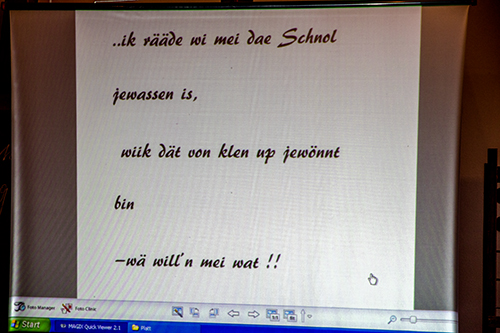 ..ik rääde wi mei dae Schnol
jewassen is,
wiik dät von klen up jewönnt
bin
–wä will'n mei wat !!
Foto Manager Foto Clinic
Start MAGIX Quick Viewer 2.1 Platt